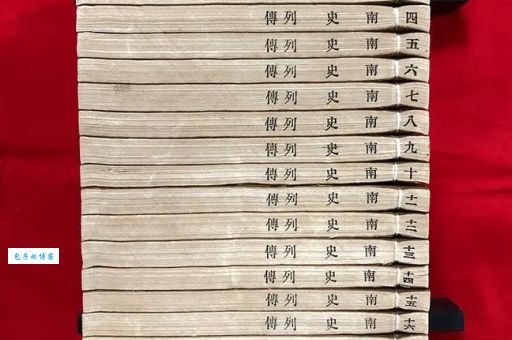 四 南史 列傳
五 南史 列傳
六 南史 列傳
七 南史 列傳
八 南史 列傳
九 南史 列傳
十 南史 列傳
十一 南史 列傳
十二 南史 列傳
十三 南史 列傳
十四 南史 列傳
十五 南史 列傳
十六 南史 列傳
包子的博客